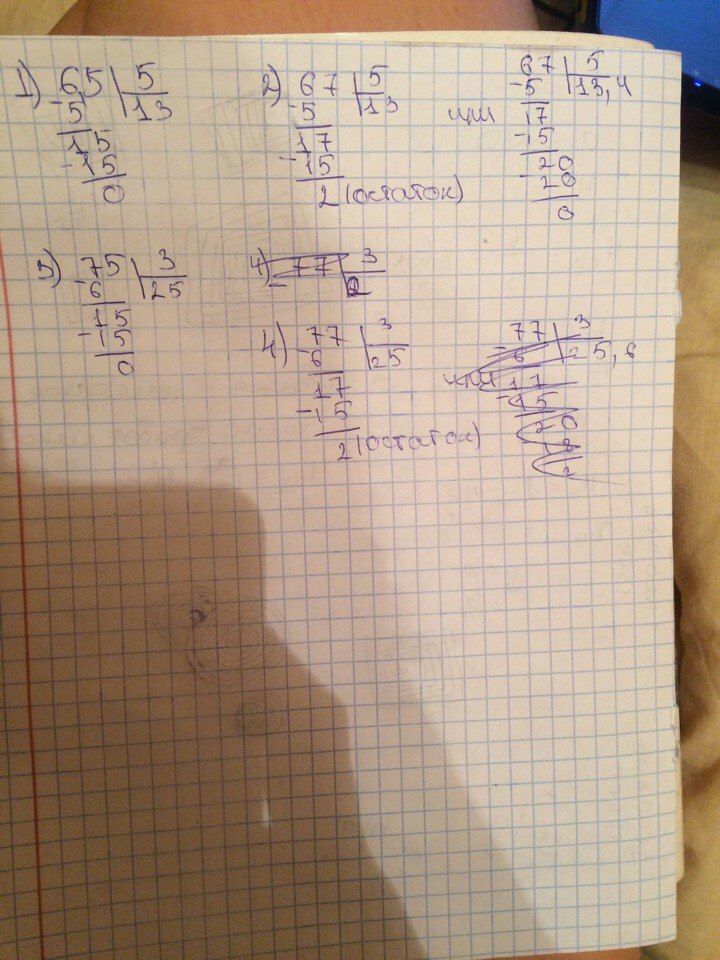 1) 65 | 5
-5 | 13
15
-15
0
2) 67 | 5
-5 | 13
17
-15
2 (остаток)
или
67 | 5
-5 | 13,4
17
-15
20
-20
0
3) 75 | 3
-6 | 25
15
-15
0
4) -77 | 3
2
4) 77 | 3
-6 | 25
17
-15
2 (остаток)
или
77 | 3
-6 | 25,6
17
-15
20
18
2